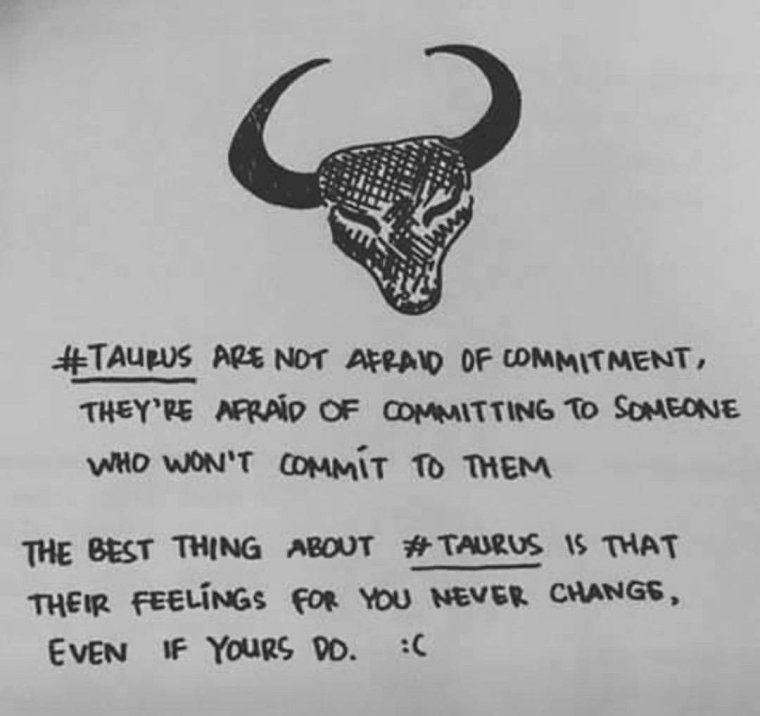 #TAURUS ARE NOT AFRAID OF COMMITMENT,
THEY'RE AFRAID OF COMMITTING TO SOMEONE
WHO WON'T COMMIT TO THEM
THE BEST THING ABOUT #TAURUS IS THAT
THEIR FEELINGS FOR YOU NEVER CHANGE,
EVEN IF YOURS DO. :(